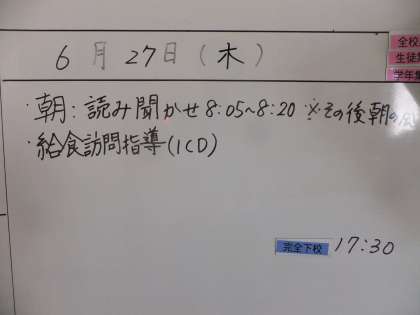 6月27日(木)
全校
生徒
学年
・朝:読み聞かせ8:05~8:20 ※その後朝の
・給食訪問指導(1CD)
完全下校 17:30